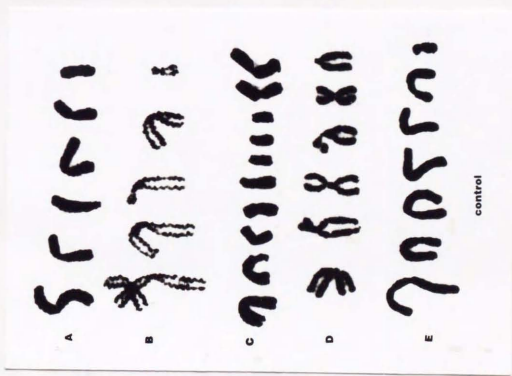 A
B
C
D
E
control